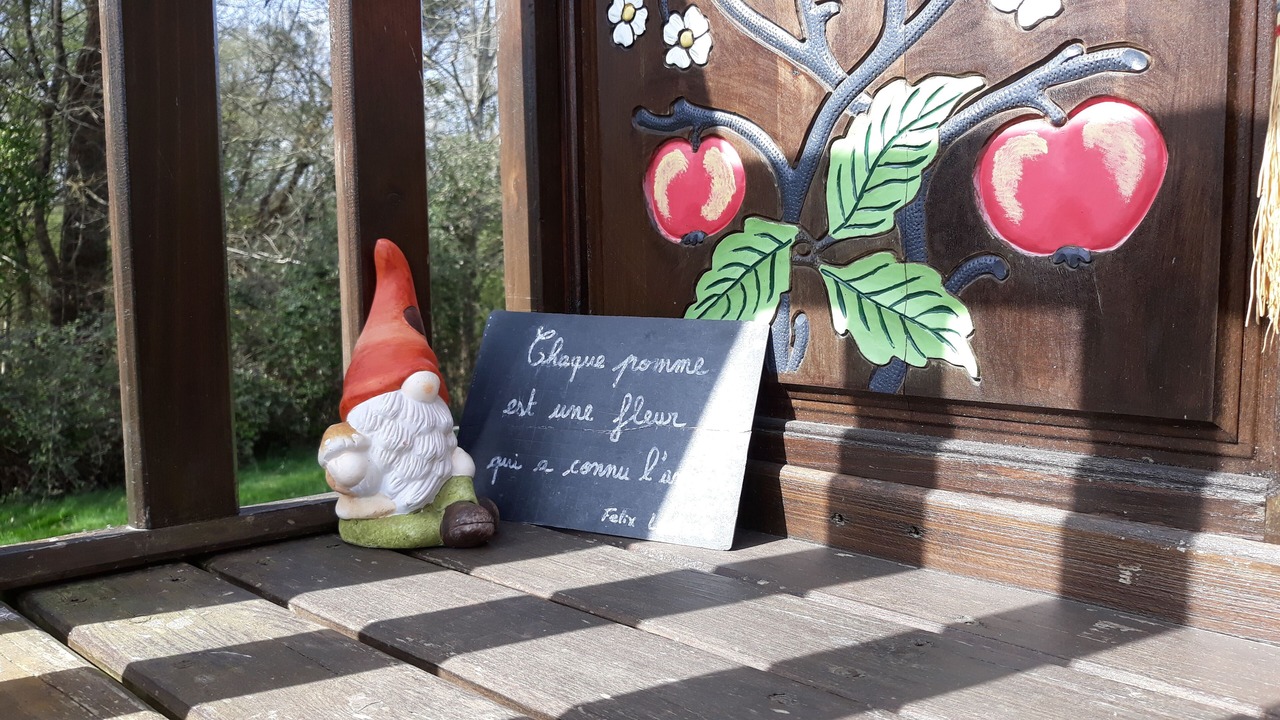 Chaque pomme
est une fleur
qui a connu
Felix